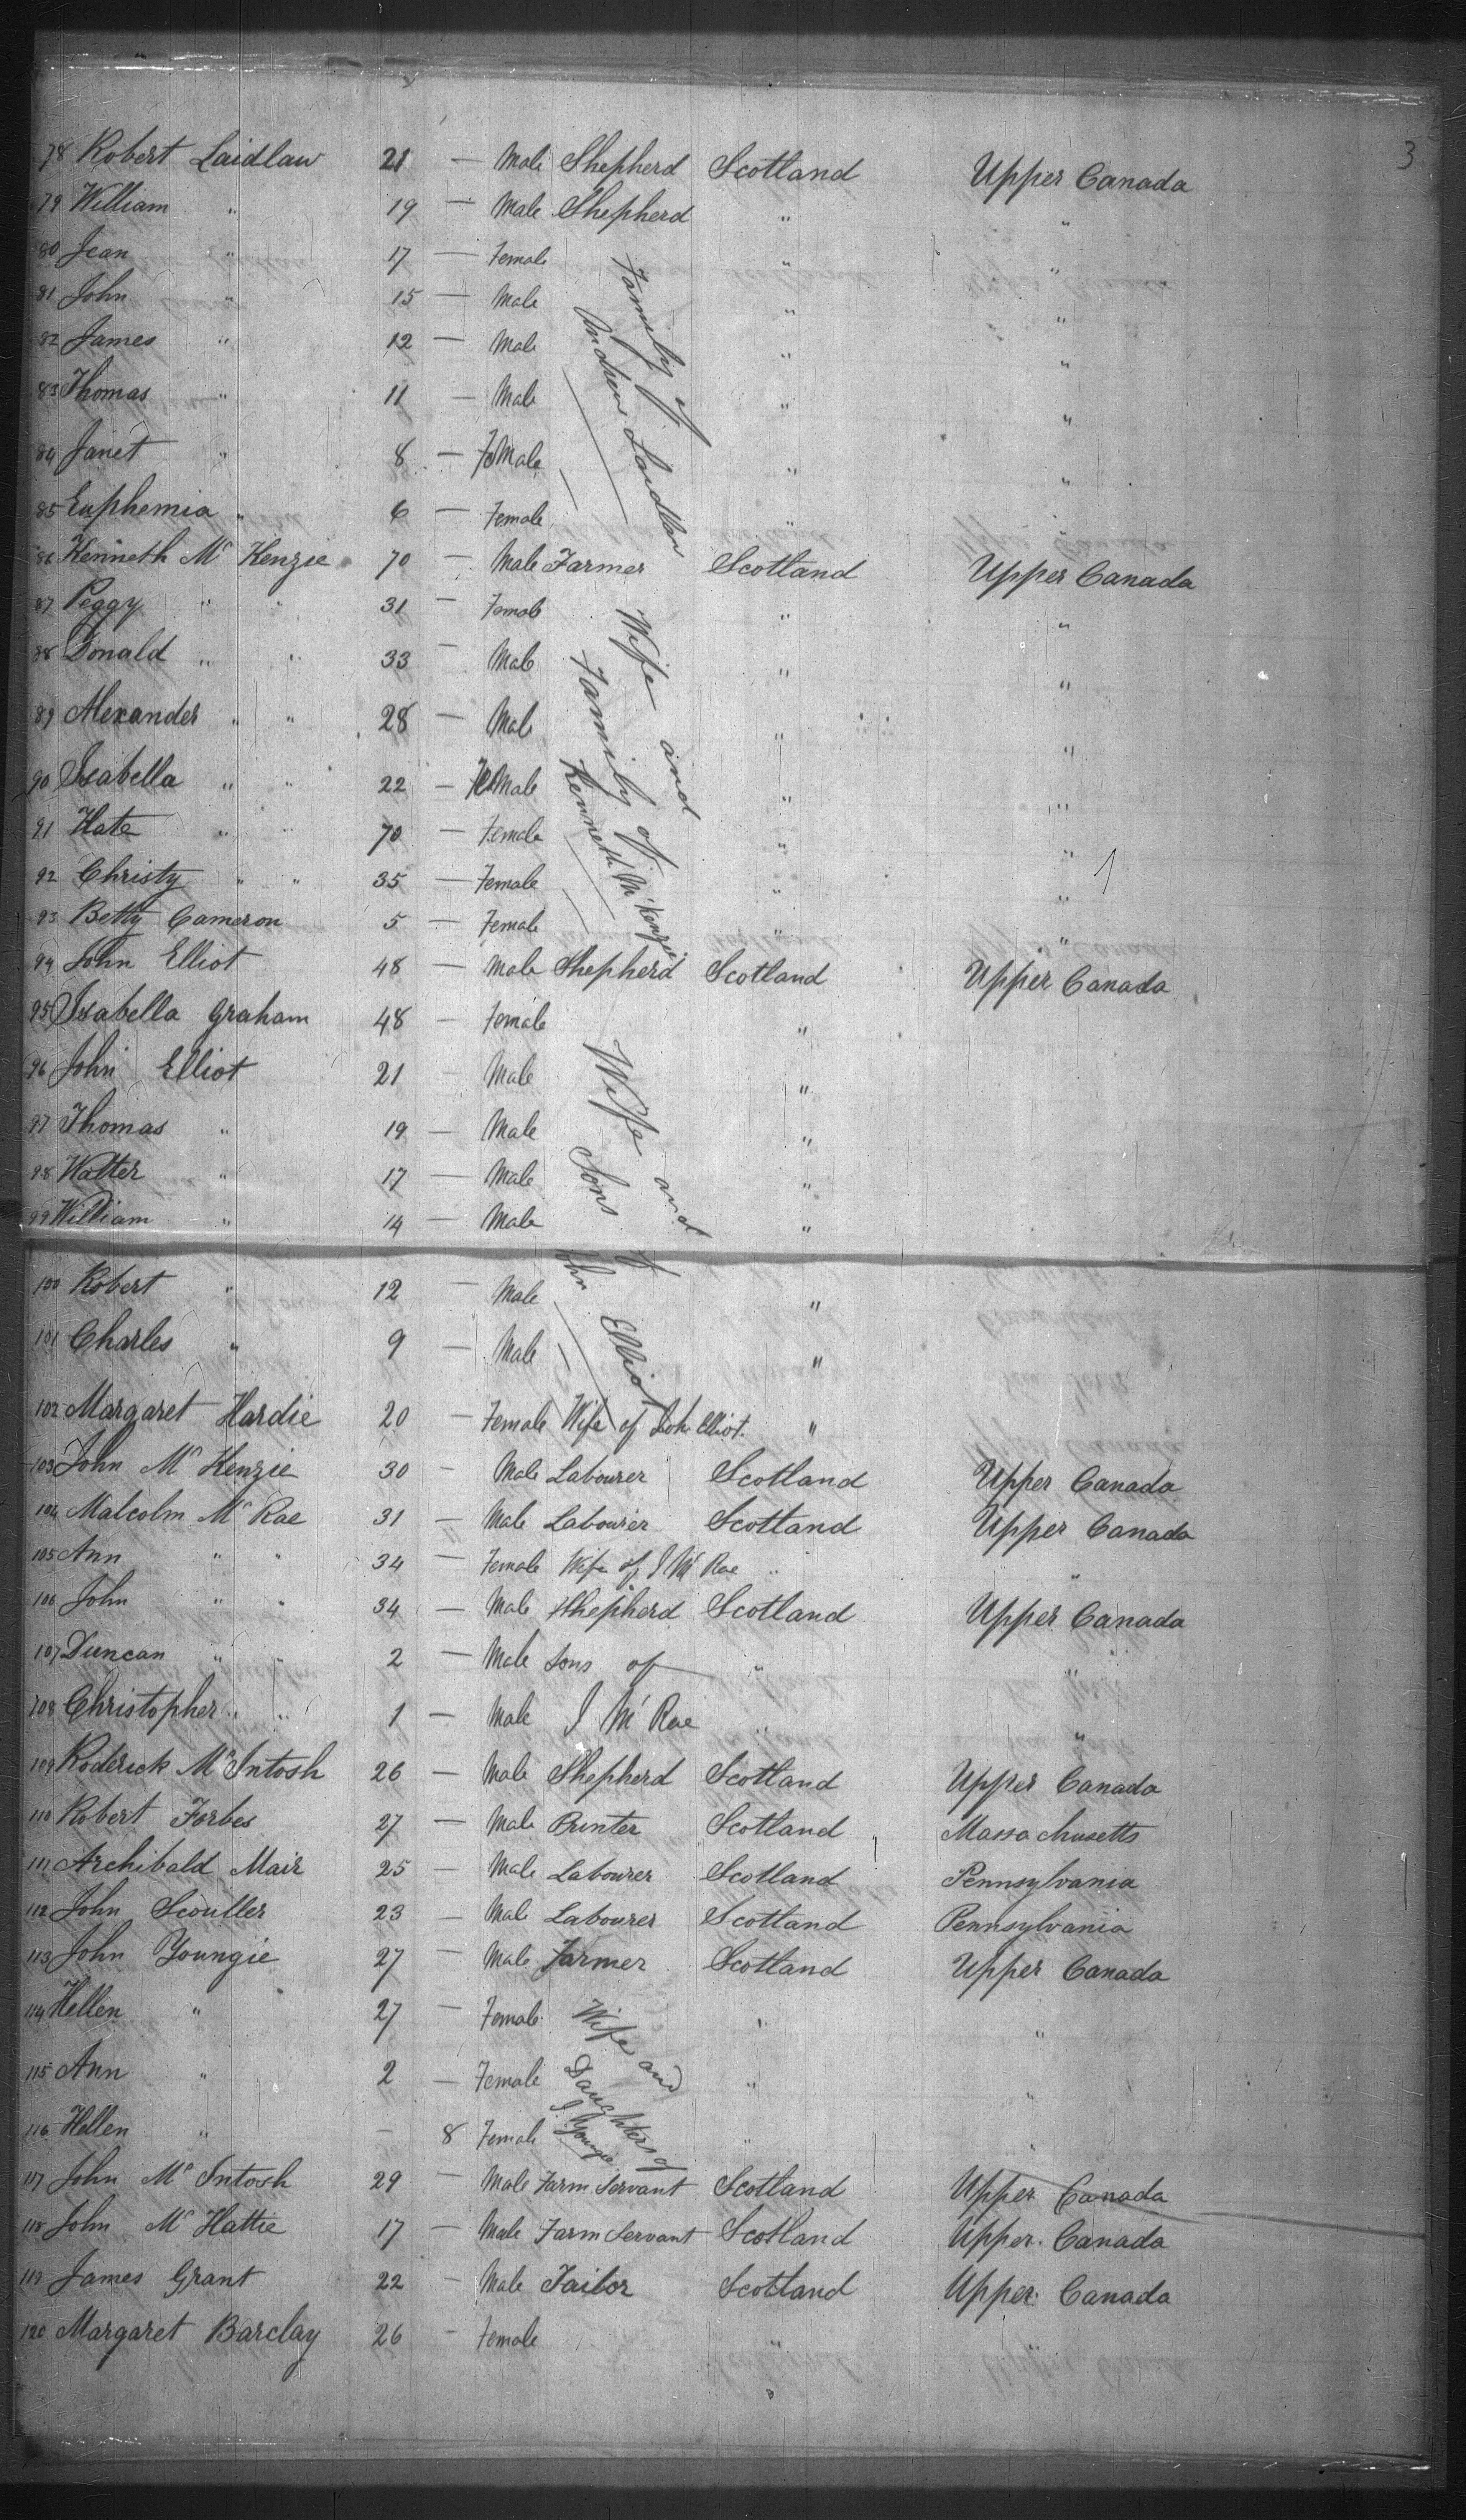 3
78 Robert Laidlaw 21 — Male Shepherd Scotland Upper Canada
79 William " 19 — Male Shepherd " "
80 Jean " 17 — Female " "
81 John " 15 — Male " "
82 James " 12 — Male " "
83 Thomas " 11 — Male " "
84 Janet " 8 — FeMale " "
85 Euphemia " 6 — Female " "
Family of
Andrew Laidlaw
86 Kenneth Mc Kenzie 70 — Male Farmer Scotland Upper Canada
87 Peggy " " 31 — Female " "
88 Donald " " 33 — Male " "
89 Alexander " " 28 — Male " "
90 Isabella " " 22 — FeMale " "
91 Kate " " 70 — Female " "
92 Christy " " 35 — Female " "
93 Betty Cameron 5 — Female " "
Wife and
Family of
Kenneth McKenzie
94 John Elliot 48 — Male Shepherd Scotland Upper Canada
95 Isabella Graham 48 — Female "
96 John Elliot 21 — Male "
97 Thomas " 19 — Male "
98 Walter " 17 — Male "
99 William " 14 — Male "
100 Robert " 12 — Male "
101 Charles " 9 — Male "
Wife and
Sons of
John Elliot
102 Margaret Hardie 20 — Female Wife of John Elliot. "
103 John Mc Kenzie 30 — Male Labourer Scotland Upper Canada
104 Malcolm Mc Rae 31 — Male Labourer Scotland Upper Canada
105 Ann " " 34 — Female Wife of J Mc Rae " "
106 John " " 34 — Male Shepherd Scotland Upper Canada
107 Duncan " " 2 — Male Sons of " "
108 Christopher " " 1 — Male J Mc Rae " "
109 Roderick McIntosh 26 — Male Shepherd Scotland Upper Canada
110 Robert Forbes 27 — Male Printer Scotland Massachusetts
111 Archibald Mair 25 — Male Labourer Scotland Pennsylvania
112 John Scouller 23 — Male Labourer Scotland Pennsylvania
113 John Youngie 27 — Male Farmer Scotland Upper Canada
114 Hellen " 27 — Female " "
115 Ann " 2 — Female " "
116 Hellen " — 8 Female " "
Wife and
Daughters of
J. Youngie
117 John Mc Intosh 29 — Male Farm Servant Scotland Upper Canada
118 John Mc Hattie 17 — Male Farm Servant Scotland Upper Canada
119 James Grant 22 — Male Tailor Scotland Upper Canada
120 Margaret Barclay 26 — Female " "